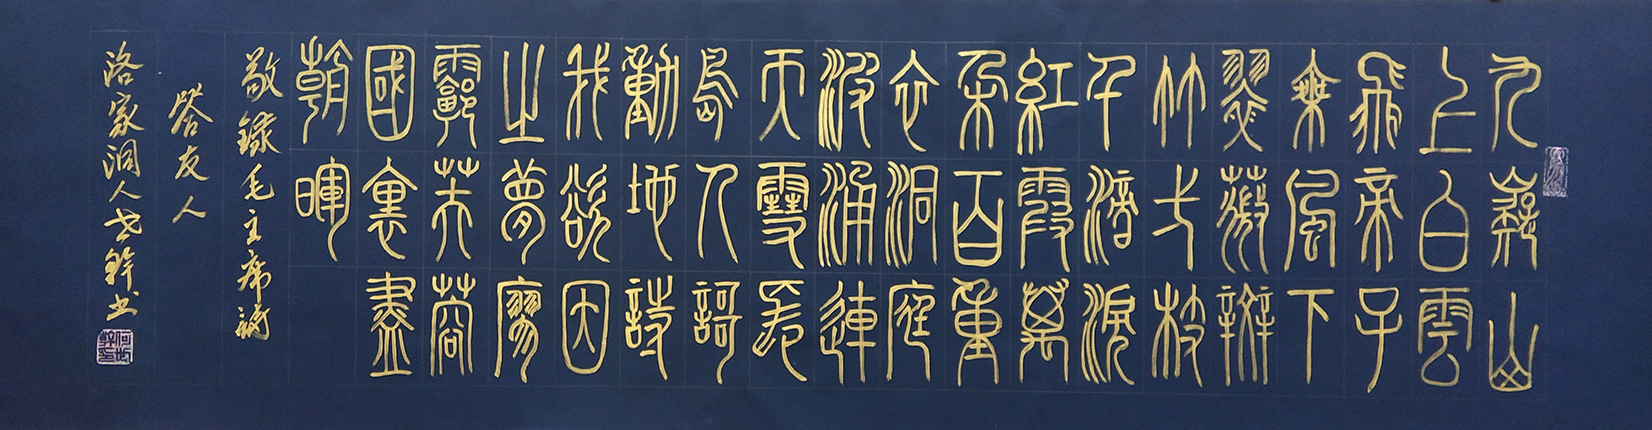 九嶷山
上白雲
飛帝子
乘風下
翠薇辬
竹一枝
千湇淚
紅霞萬
朵百重
衣洞庭
波涌連
天雪長
島人謌
動地詩
我欲因
之夢寥
霩芙蓉
國裏盡
朝暉
敬録毛主席詩
答友人
洛家洞人世幹书